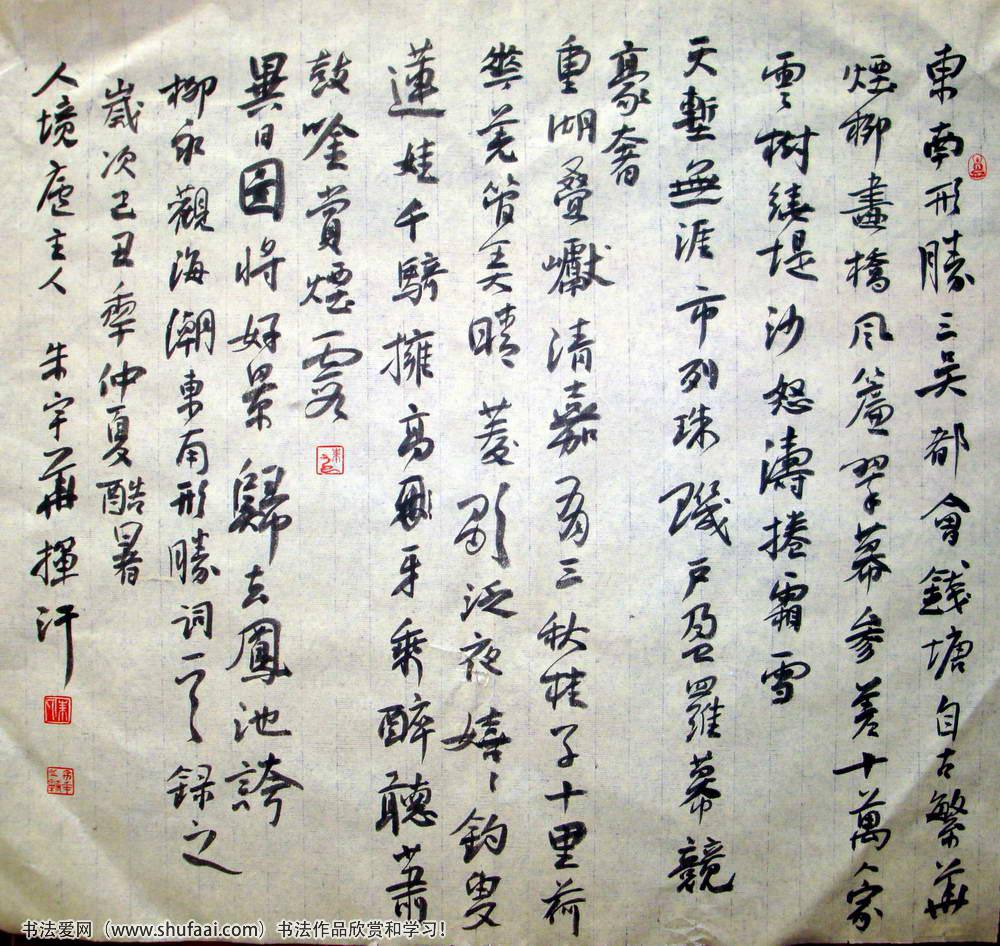 東南形勝三吳都會錢塘自古繁華
煙柳畫橋風簾翠幕參差十萬人家
雲樹繞堤沙怒濤捲霜雪
天塹無涯市列珠璣戶盈羅幕競
豪奢
重湖疊巘清嘉有三秋桂子十里荷
華羌管美晴菱歌泛夜嬉〻釣叟
蓮娃千騎擁高牙乘醉聽蕭
鼓唫賞煙霞
異日圖將好景歸去鳳池誇
柳永觀海潮東南形勝詞一首錄之
歲次己丑季仲夏酷暑
人境廬主人 朱宇華揮汗
书法爱网(www.shufaai.com)书法作品欣赏和学习!